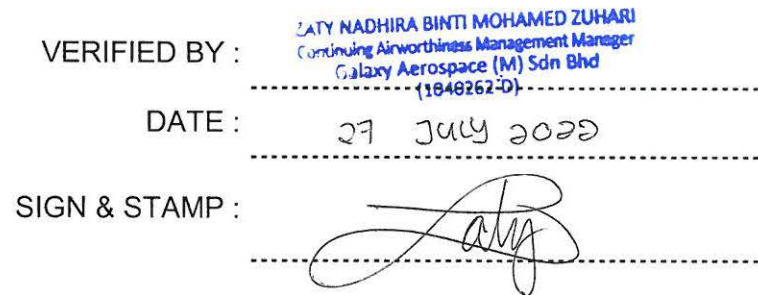 VERIFIED BY :
ZATY NADHIRA BINTI MOHAMED ZUHARI
Continuing Airworthiness Management Manager
Galaxy Aerospace (M) Sdn Bhd
(1048262-D)
DATE :
27 JULY 2022
SIGN & STAMP :
Zaty